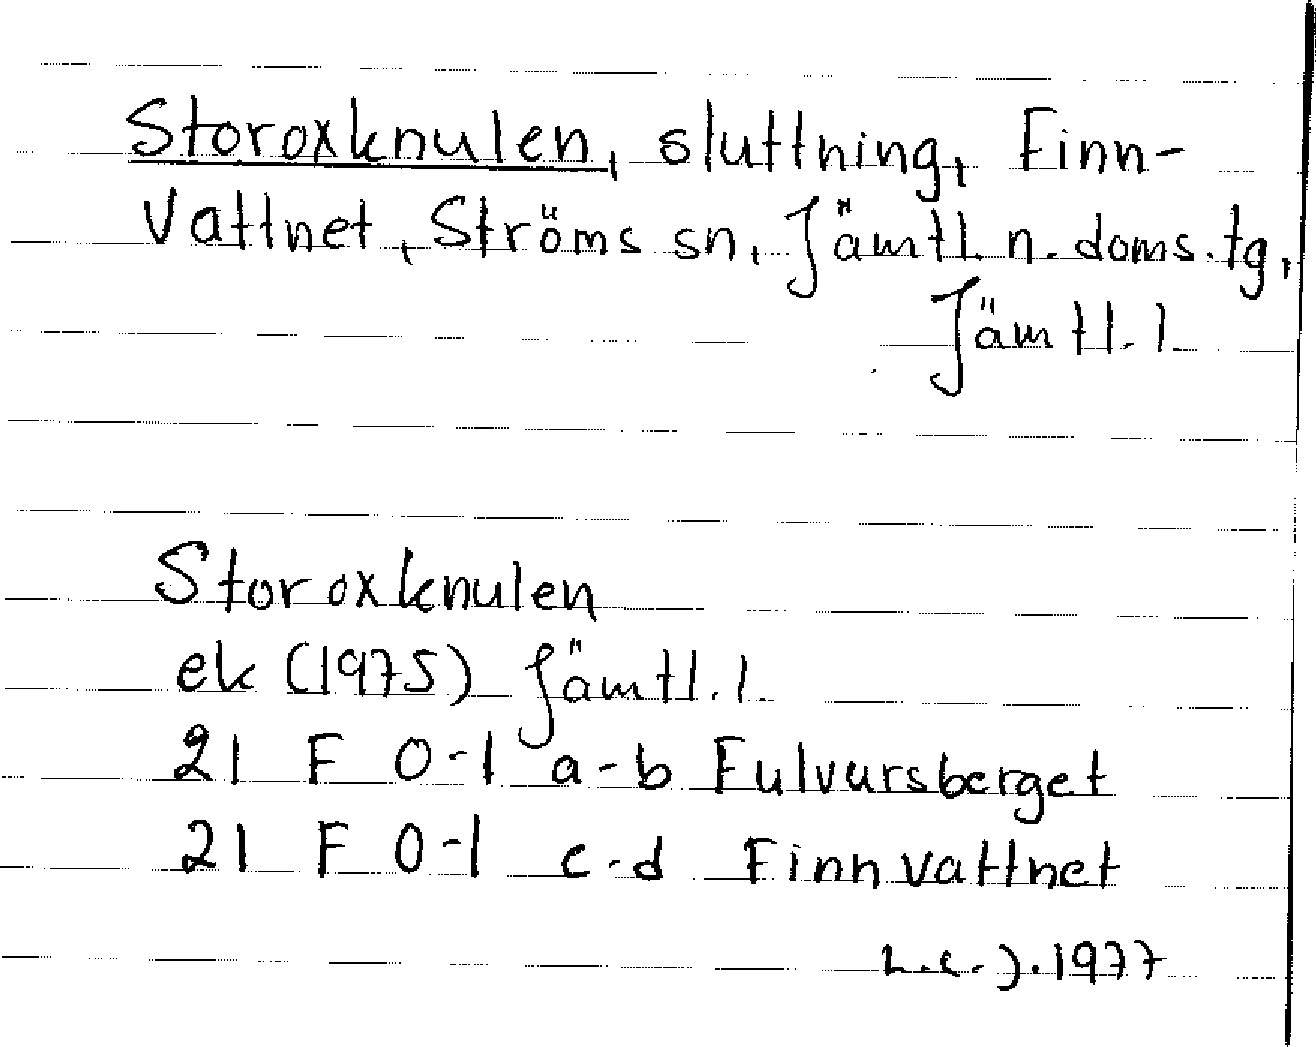 Storoxknulen, sluttning, Finn-
vattnet, Ströms sn, Jämtl. n. doms. tg,
Jämtl. l.
Storoxknulen
ek (1975) Jämtl. l.
21 F 0-1 a-b Fulvursberget
21 F 0-1 c-d Finnvattnet
1977